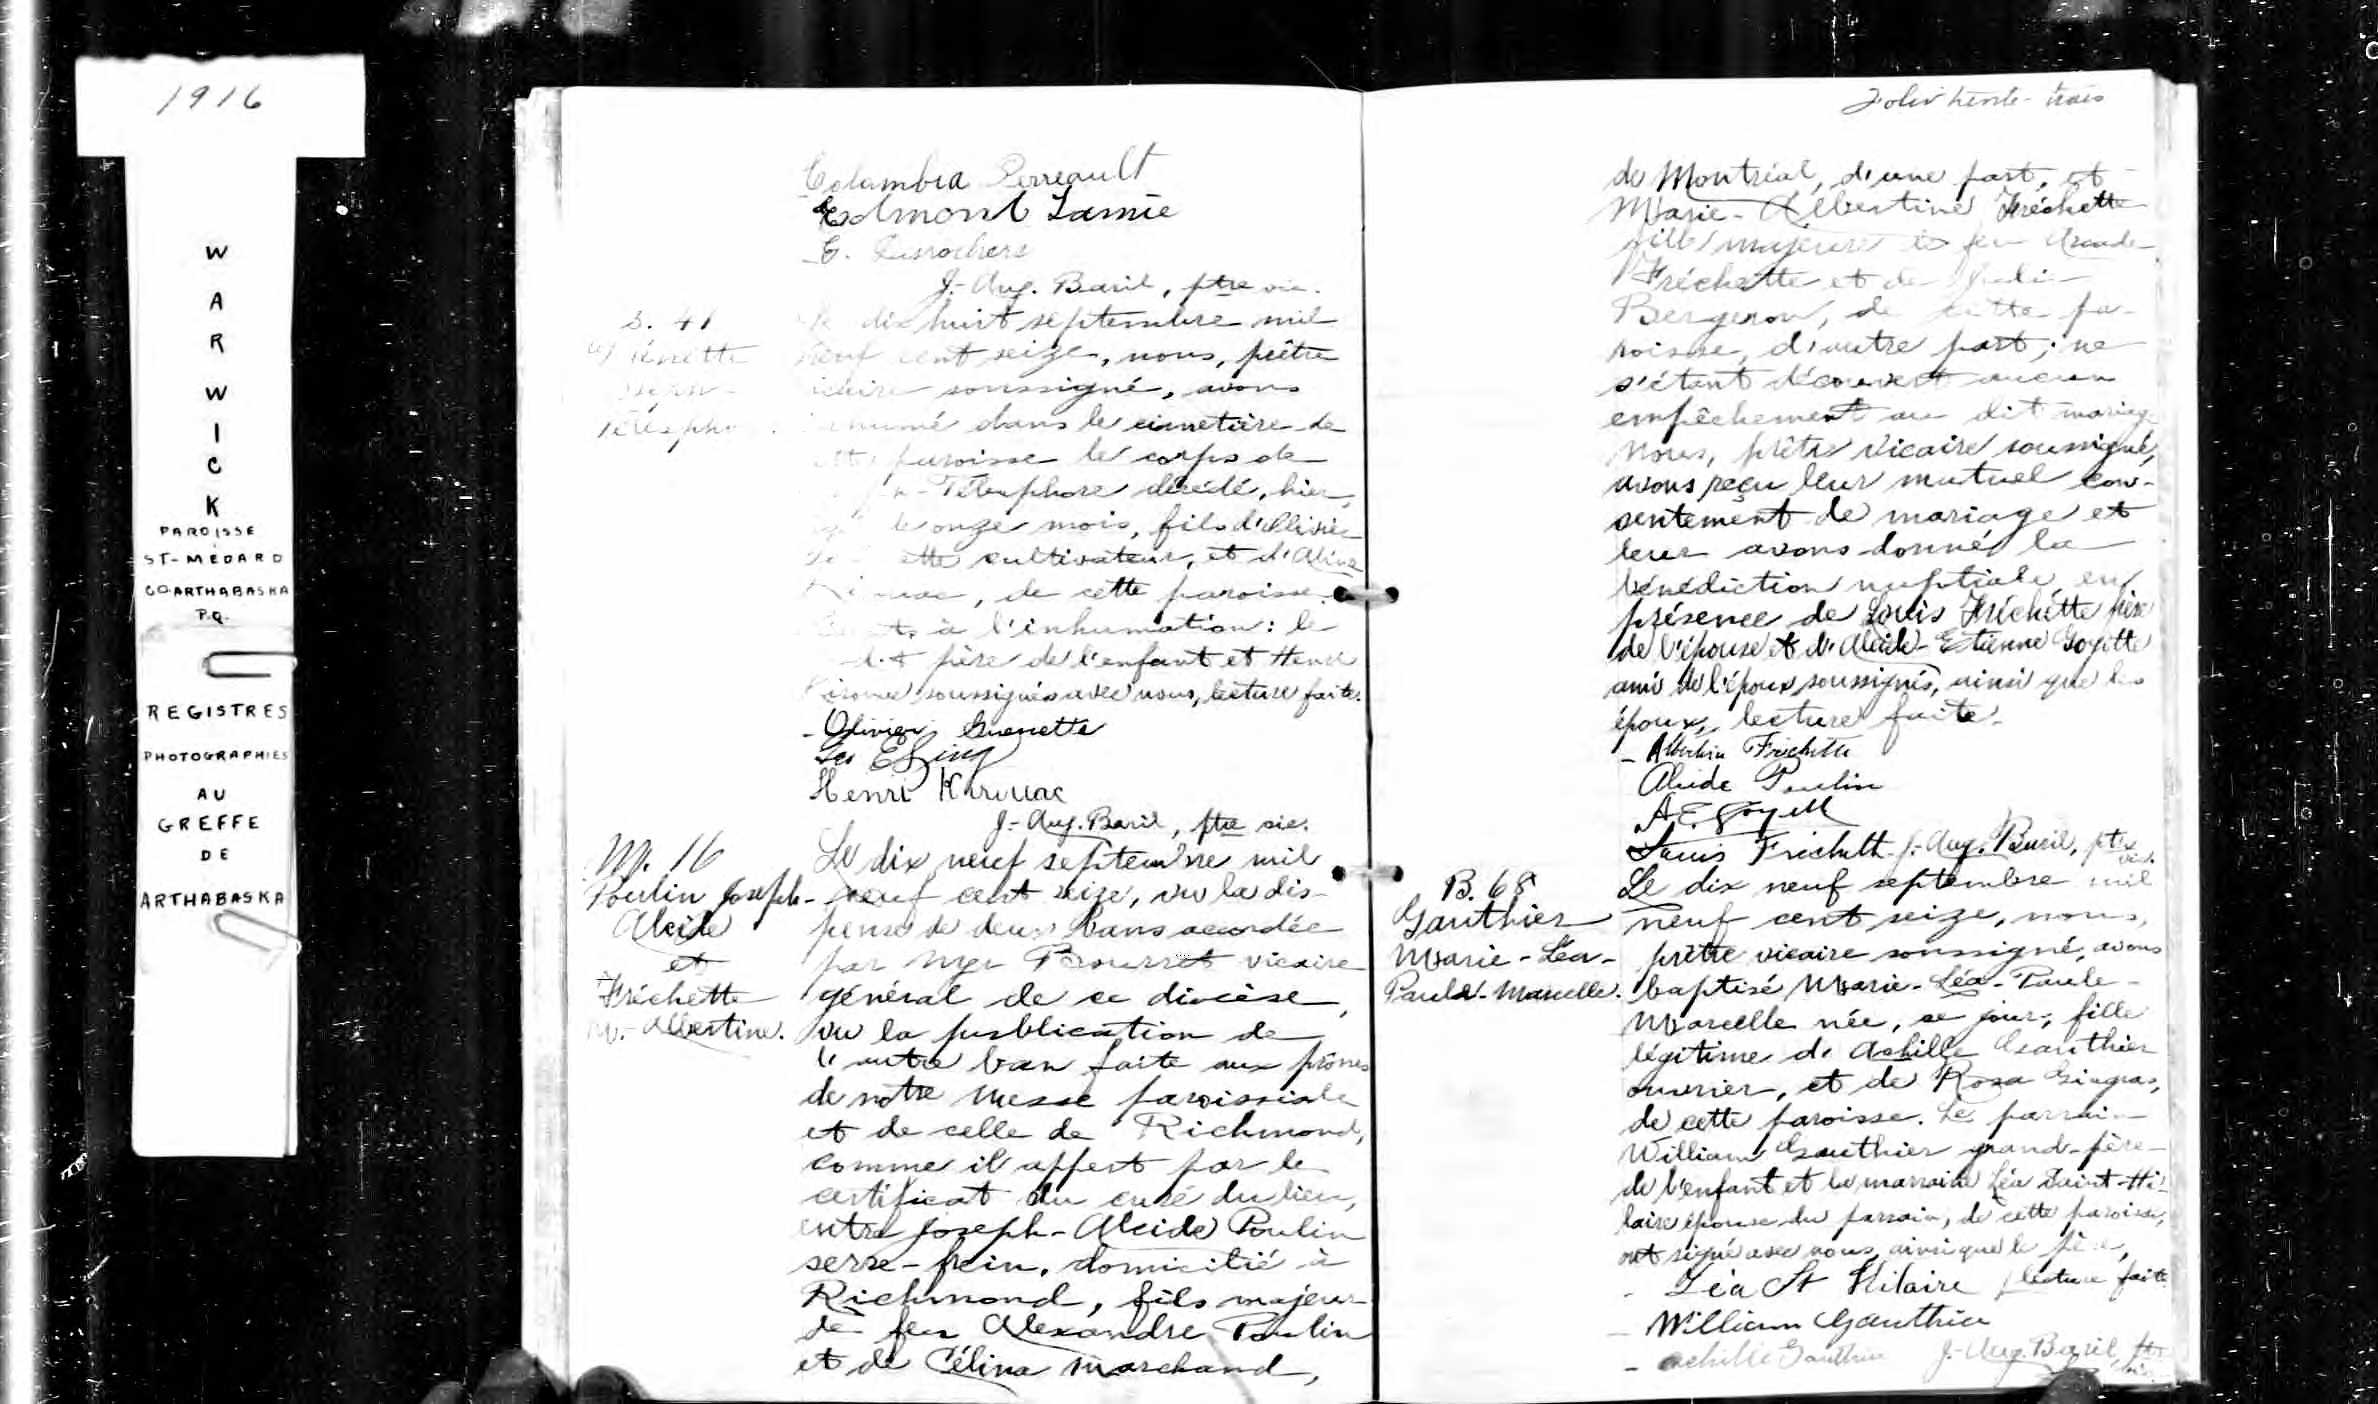 1916
W
A
R
W
I
C
K
PAROISSE
ST-MÉDARD
CO-ARTHABASKA
P.Q.
REGISTRES
PHOTOGRAPHIES
AU
GREFFE
DE
ARTHABASKA
Columbia Perreault
Edmond Lainé
E. Desrochers
J.-Aug. Baril, ptre vic.
S. 41
dix huit septembre mil
neuf cent seize, nous, prêtre
vicaire soussigné, avons
inhumé dans le cimetière de
paroisse le corps de
Télesphore décédé, hier,
de onze mois, fils d'Olivier
cultivateur, et d'Alina
de cette paroisse.
à l'inhumation: le
dit père de l'enfant et Henri
soussignés avec nous, lecture faite.
- Olivier Guenette
Henri Kirouac
J.-Aug. Baril, ptre vic.
M. 16
Poulin Joseph-
Alcide
et
Fréchette
M.-Albertine.
Le dix neuf septembre mil
neuf cent seize, vu la dis-
pense de deux bans accordée
par Mgr Bourret vicaire
général de ce diocèse,
vu la publication de
l'autre ban faite aux prônes
de notre messe paroissiale
et de celle de Richmond,
comme il appert par le
certificat du curé du lieu,
entre Joseph-Alcide Poulin
serre-frein, domicilié à
Richmond, fils majeur
de feu Alexandre Poulin
et de Célina Marchand,
Folio trente-trois
de Montréal, d'une part, et
Marie-Albertine Fréchette
fille majeure de feu
Fréchette et de
Bergeron, de cette pa-
roisse, d'autre part; ne
s'étant découvert aucun
empêchement au dit mariage
Nous, prêtre vicaire soussigné,
avons reçu leur mutuel con-
sentement de mariage et
leur avons donné la
bénédiction nuptiale en
présence de Louis Fréchette père
de l'épouse et d'Alcide-Etienne Goyette
ami de l'époux soussignés, ainsi que les
époux, lecture faite.
- Albertine Fréchette
Alcide Poulin
A E Goyett
Louis Frechett J.-Aug. Baril, ptre
vic.
B. 68
Gauthier
Marie-Léa-
Paule-Marcelle.
Le dix neuf septembre mil
neuf cent seize, nous,
prêtre vicaire soussigné, avons
baptisé Marie-Léa-Paule-
Marcelle née, ce jour, fille
légitime d'Achille Gauthier
ouvrier, et de Rosa Gingras,
de cette paroisse. Le parrain
William Gauthier grand-père
de l'enfant et la marraine Léa Saint-Hi-
laire épouse du parrain, de cette paroisse,
ont signé avec nous, ainsi que le père,
- Léa St Hilaire lecture faite
- William Gauthier
- Achille Gauthier J.-Aug. Baril, ptre
vic.